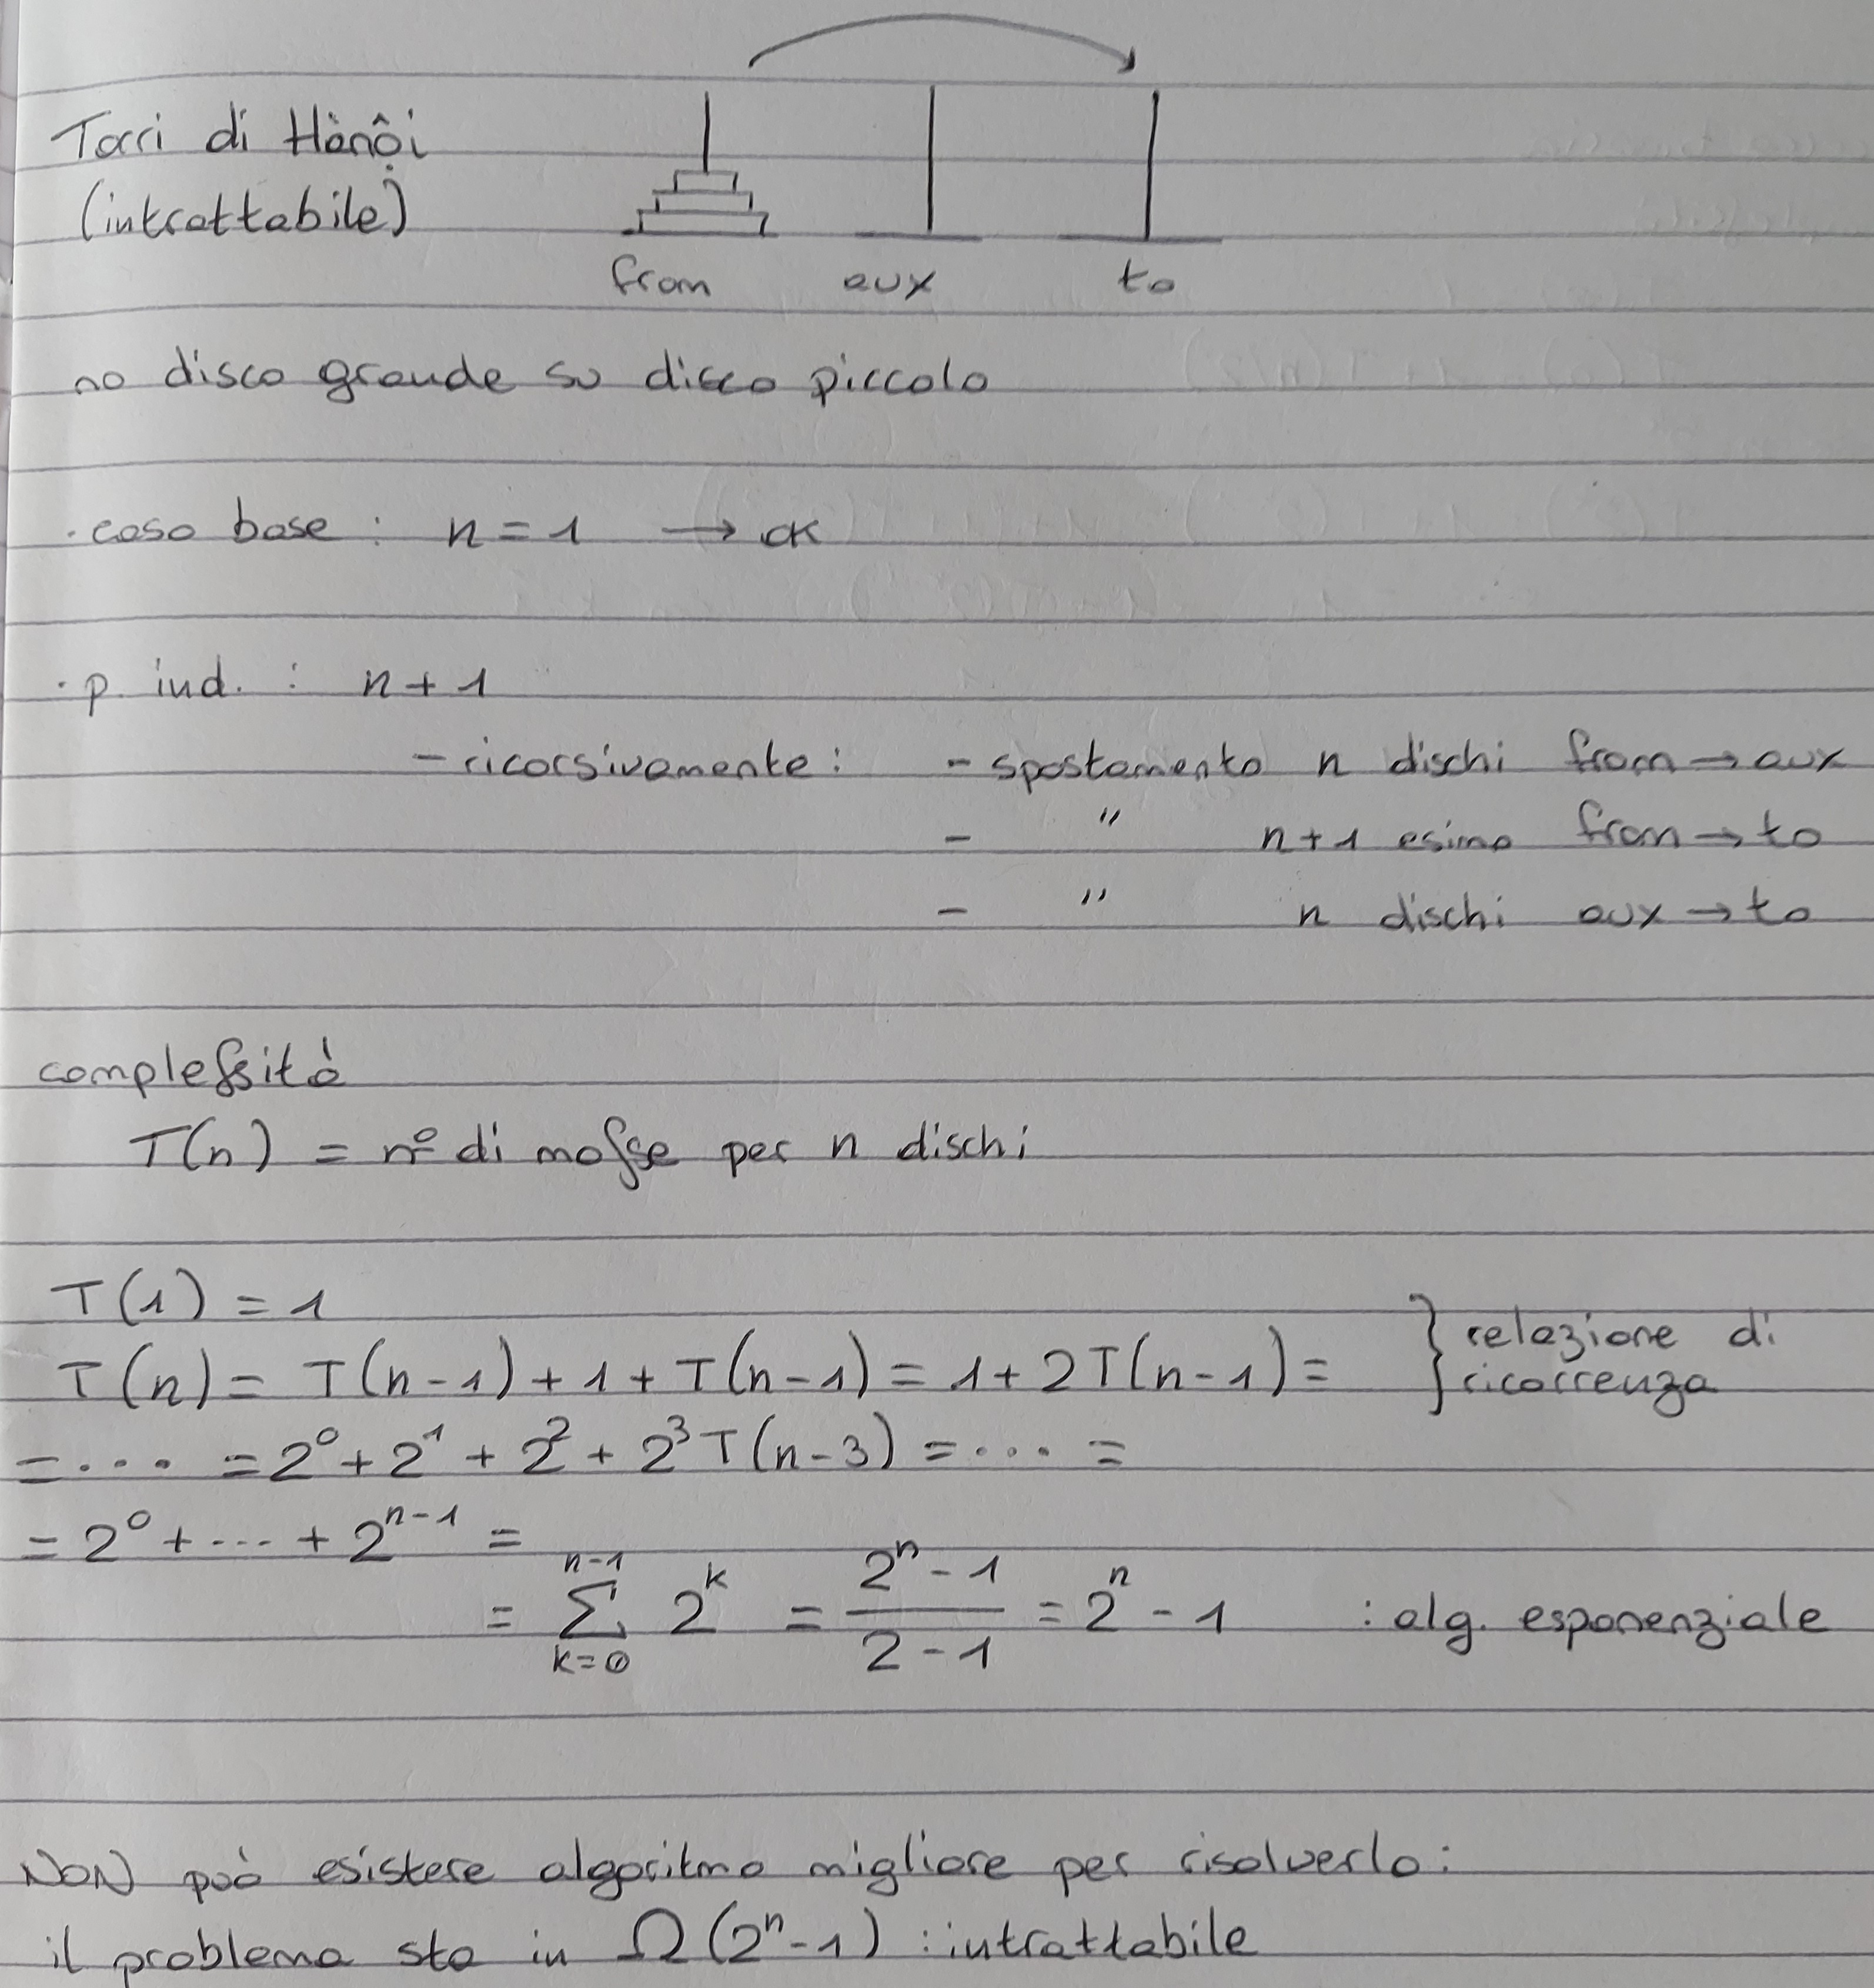 Torri di Hànôi
(intrattabile)
from aux to
no disco grande su disco piccolo
· caso base : n = 1 → ok
· p. ind. : n + 1
- ricorsivamente : - spostamento n dischi from → aux
- " n + 1 esimo from → to
- " n dischi aux → to
complessità
T(n) = n° di mosse per n dischi
T(1) = 1
T(n) = T(n-1) + 1 + T(n-1) = 1 + 2T(n-1) = } relazione di ricorrenza
= ··· = 2⁰ + 2¹ + 2² + 2³T(n-3) = ··· =
= 2⁰ + ··· + 2ⁿ⁻¹ =
= ∑_{k=0}^{n-1} 2^k = (2ⁿ - 1)/(2 - 1) = 2ⁿ - 1 : alg. esponenziale
NON può esistere algoritmo migliore per risolverlo :
il problema sta in Ω(2ⁿ-1) : intrattabile